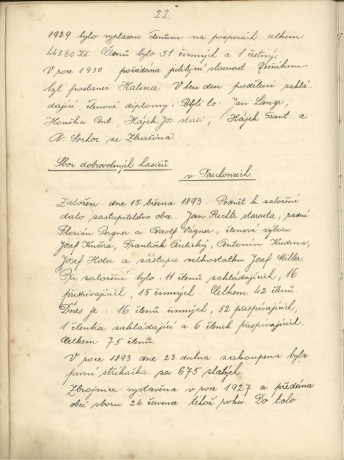 22.
1929 bylo vyplaceno členům na podporách celkem
Členů bylo 51 činných a 1 čestný.
V roce 1930 pořádána jubilejní slavnost. Řečníkem
byl poslanec Halina. V ten den poděleni zaklá-
dající členové diplomy. Byli to: Jan Langr,
Ant. Hájek Jos. starší, Hájek Frant a
se
Sbor dobrovolných hasičů
v
Založen dne 15. března 1893 Podnět k založení
dalo zastupitelstvo obce Jan starosta, radní
Florián a Adolf Vágner, členové výboru
Josef Kučera, František Antonín
Josef a zástupce velkostatku Josef
Při založení bylo: 11 členů zakládajících, 16
přispívajících, 15 činných. Celkem 42 členů.
Dnes je: 16 členů činných, 52 přispívajících,
1 členka zakládající a 6 členek přispívajících.
Celkem 75 členů
V roce 1893 dne 23. dubna zakoupena byla
první stříkačka za 675 zlatých
Zbrojnice vystavěna v roce 1927 a předána
obcí sboru 24. července téhož roku. Do toho